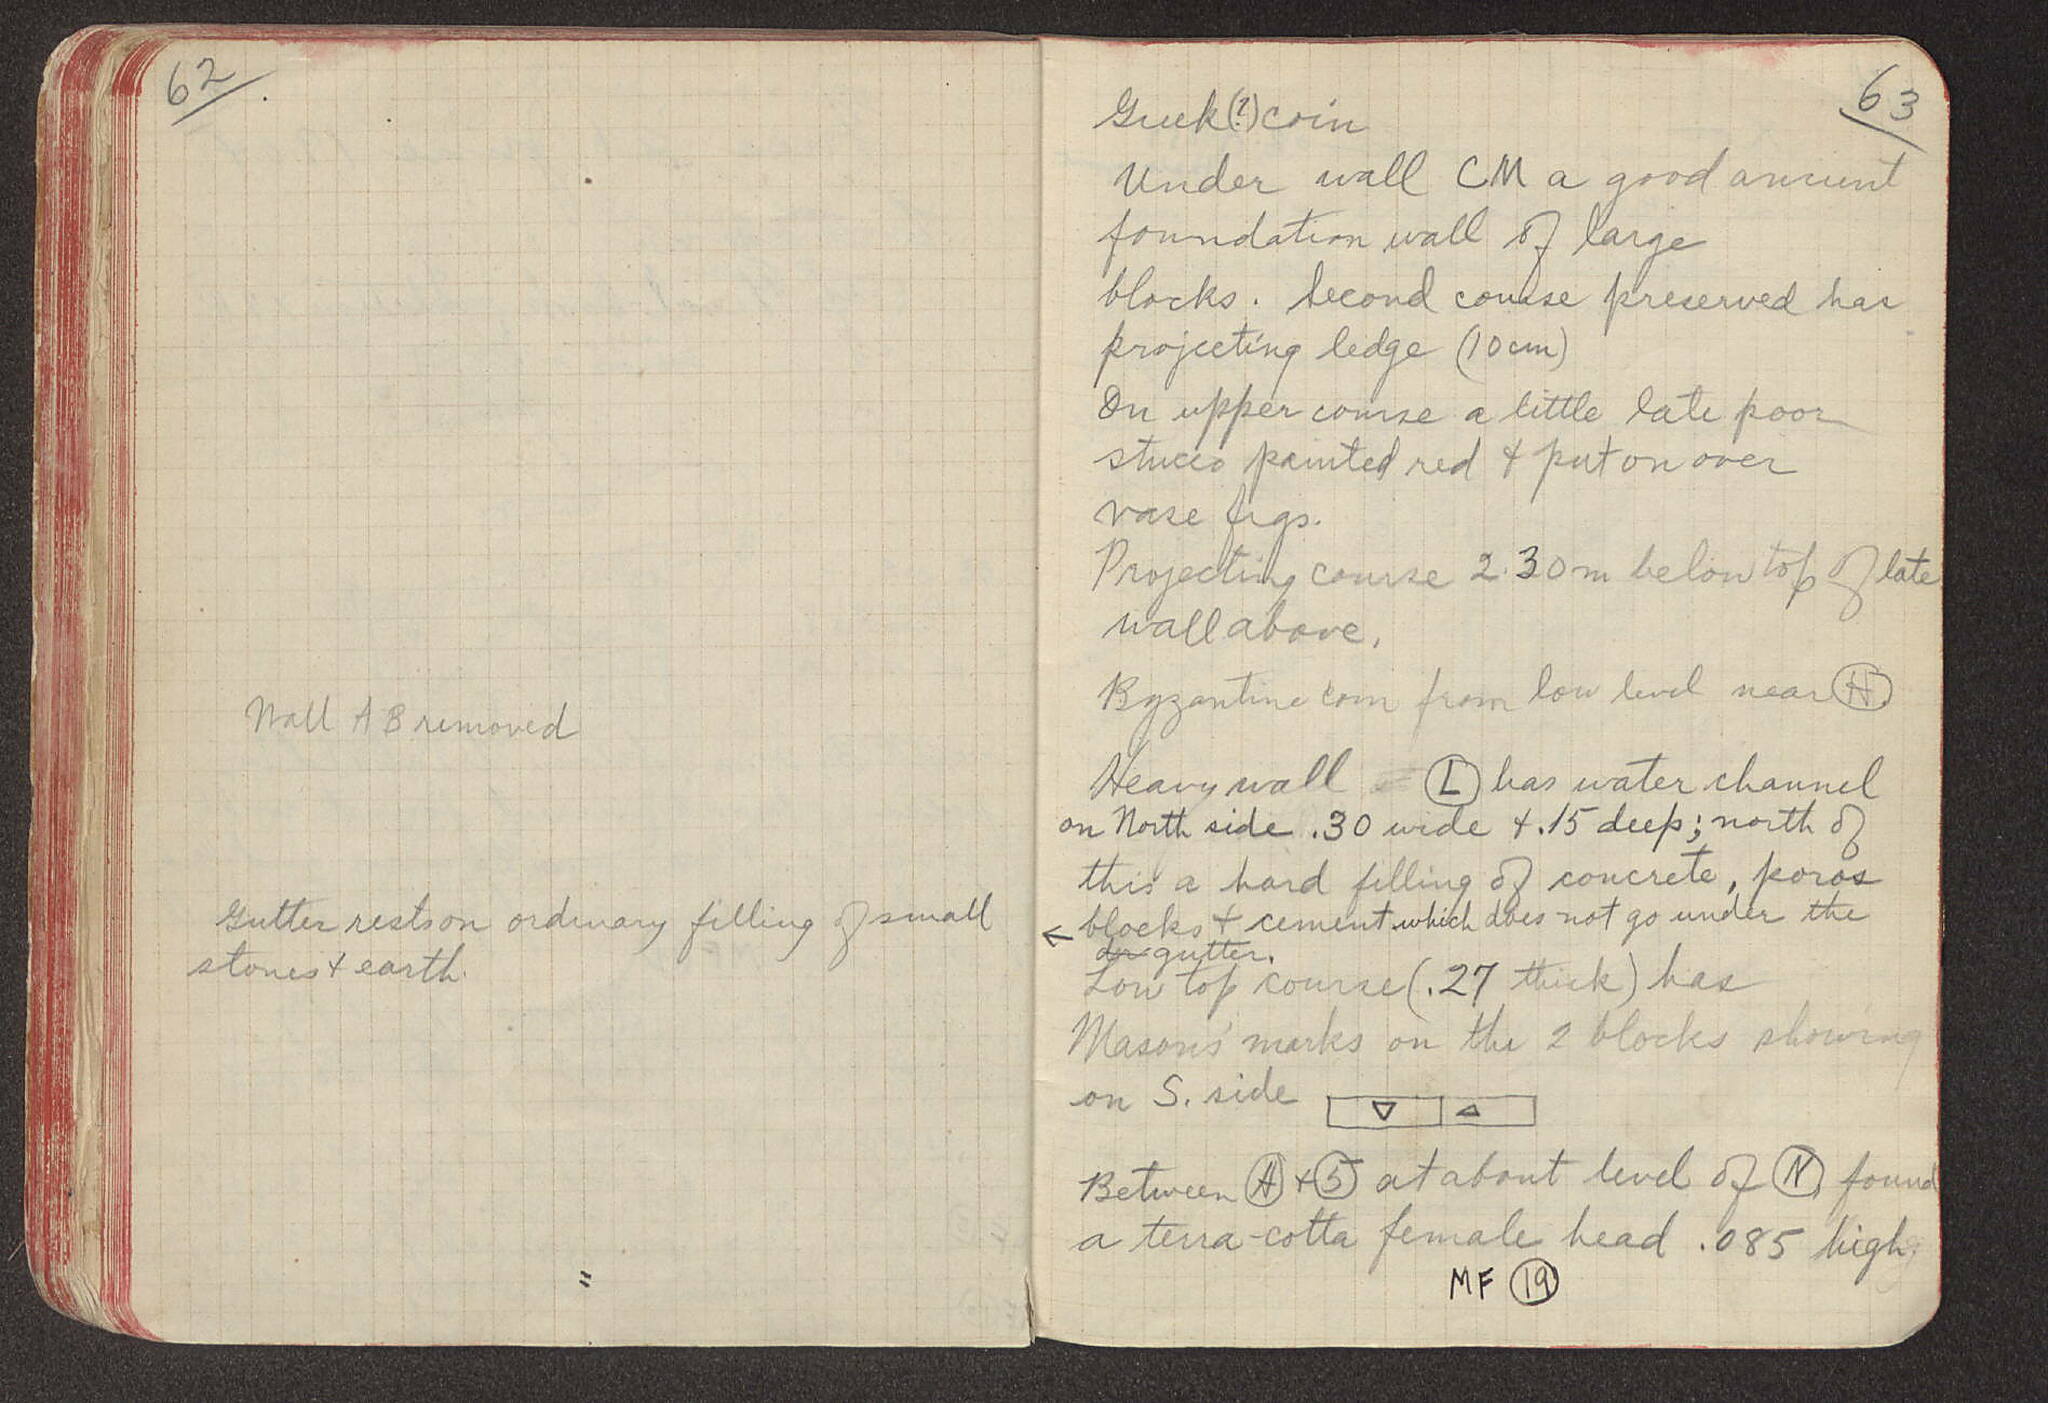 62
Wall AB removed
Gutter rests on ordinary filling of small
stones & earth.
63
Greek (?) coin
Under wall CM a good ancient
foundation wall of large
blocks. Second course preserved has
projecting ledge (10 cm)
On upper course a little late poor
stucco painted red & put on over
vase figs.
Projecting course 2.30 m below top of late
wall above.
Byzantine coin from low level near H
Heavy wall L has water channel
on North side .30 wide & .15 deep; north of
this a hard filling of concrete, poros
← blocks & cement which does not go under the
gutter.
Low top course (.27 thick) has
Masons' marks on the 2 blocks showing
on S. side
Between H & 5 at about level of N, found
a terra-cotta female head .085 high.
MF 19